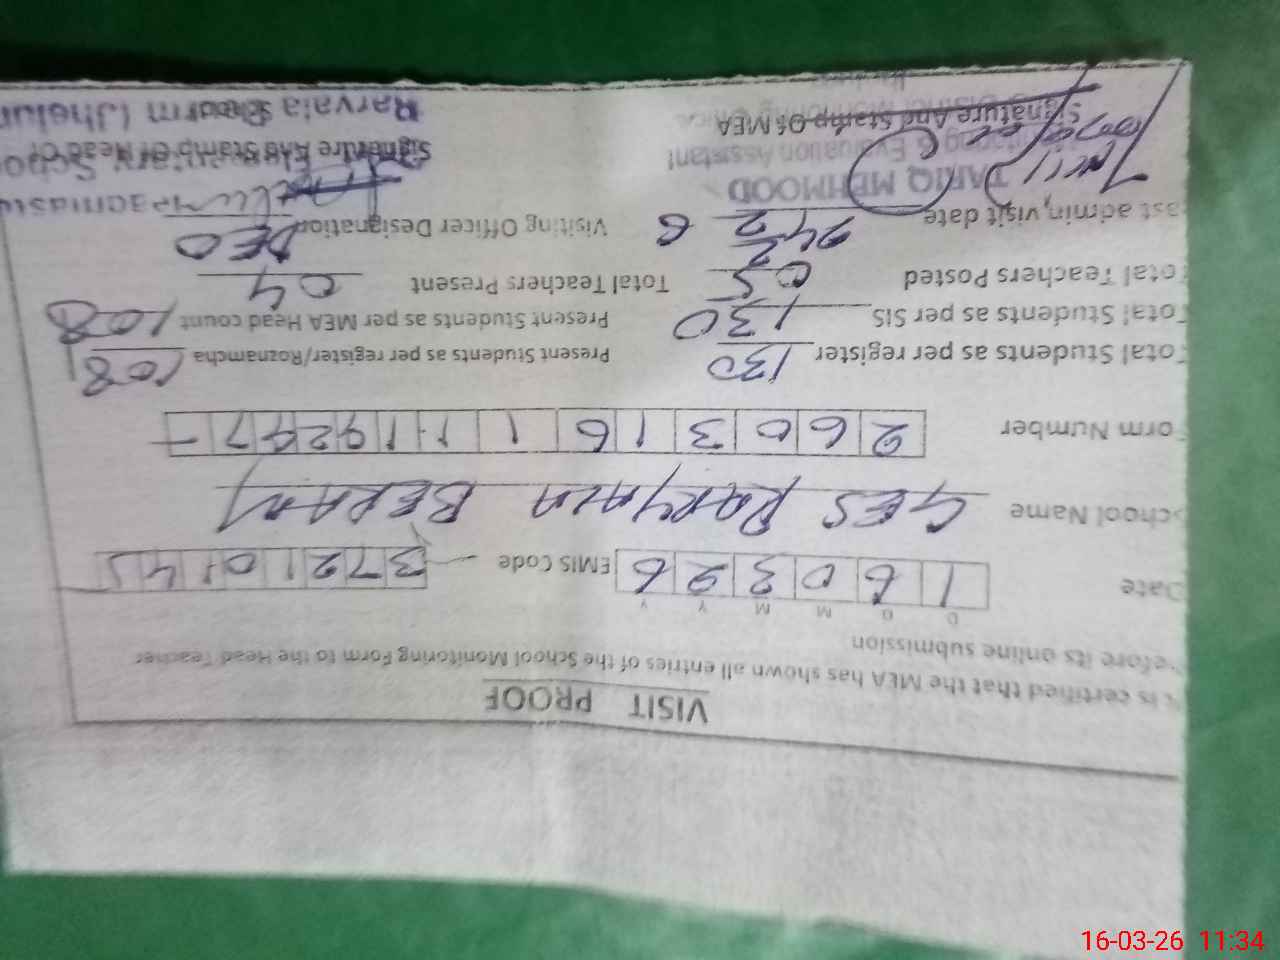 VISIT PROOF
is certified that the MEA has shown all entries of the School Monitoring Form to the Head Teacher
before its online submission
D D M M Y Y
Date 1 6 0 3 2 6 EMIS Code 3 7 2 1 0 1 4 5
School Name GES
Form Number 2 6 0 3 1 6 1 1 1 9 2 4 7 -
Total Students as per register 130 Present Students as per register/Roznamcha 108
Total Students as per SIS 130 Present Students as per MEA Head count 108
Total Teachers Posted 05 Total Teachers Present 04
ast admin, visit date Visiting Officer Designation DEO
TARIQ MEHMOOD
Monitoring & Evaluation Assistant
Signature And Stamp Of MEA Signature And Stamp Of Head Of
16-03-26 11:34